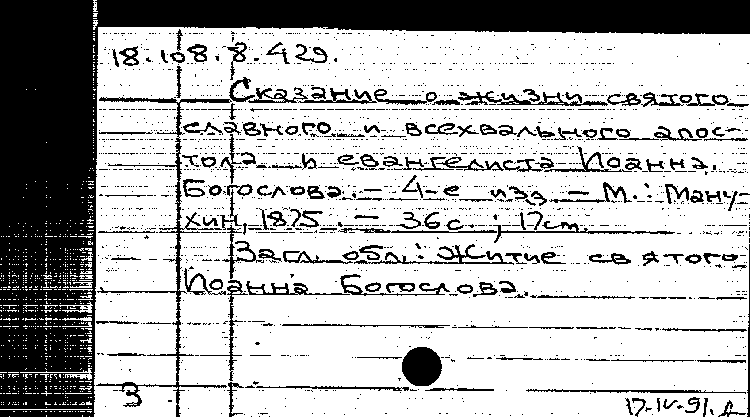 18.108.8.429.
Сказание о жизни святого
славного и всехвального апос-
тола и евангелиста Иоанна.
Богослова. – 4-е изд – М.: Ману-
хин, 1875. – 36с.; 17см.
Загл. обл.: Житие святого
Иоанна Богослова.
3
17.IV.91.